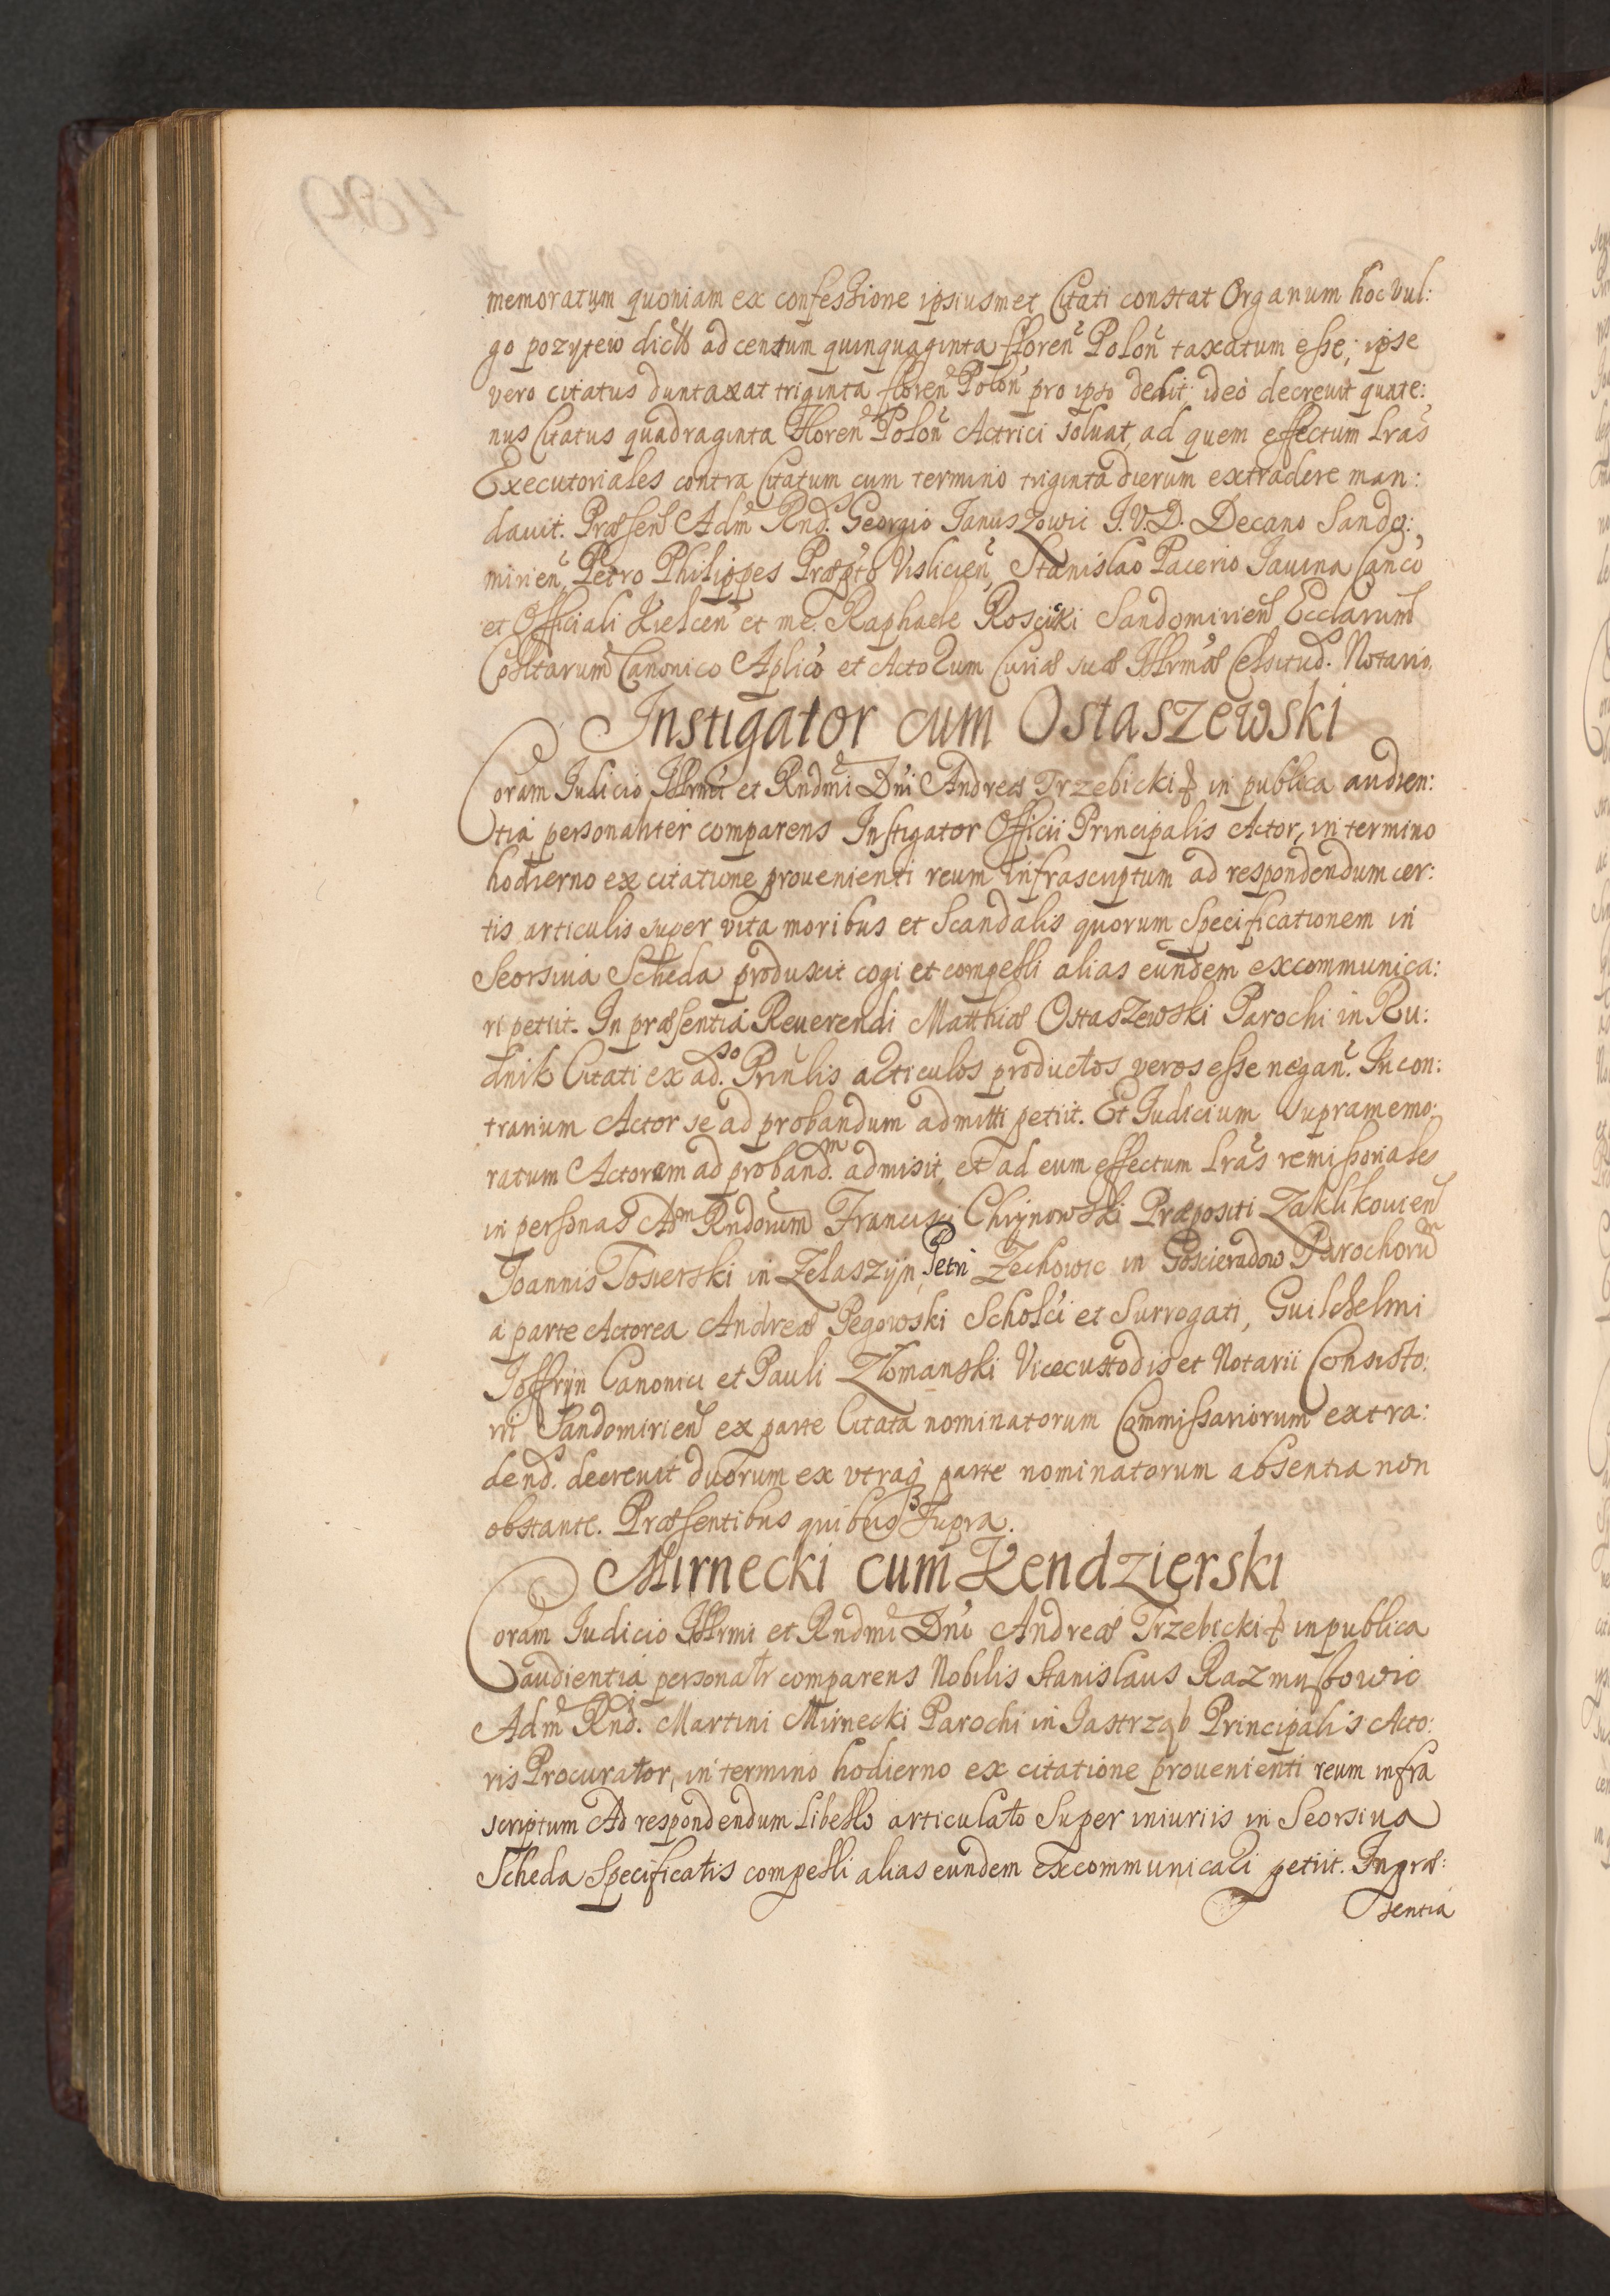 memoratum quoniam ex confessione ipsiusmet Citati constat Organum hoc vul:
go pozytew dictū ad centum quinquaginta floren̄ Polon̄ taxatum esse; ipse
vero citatus duntaxat triginta floren̄ Polon̄ pro ipso dedit; ideò decreuit quate:
nus Citatus quadraginta floren̄ Polon̄ Actrici soluat, ad quem effectum Lrās
Executoriales contra Citatum cum termino triginta dierum extradere man:
dauit. Præsen̄ Adm̄ Rnd. Georgio Januszowic J.V.D. Decano Sando:
mirien̄, Petro Philippes Præpto Vislicien̄, Stanislao Pacerio Jauina Canco
et Officiali Kielcen̄ et me Raphaele Roscicki Sandomirien̄ Ecclarum
Cosltarum Canonico Aplico et Actorum Curiæ suæ Illrmæ Celsitud. Notario.
Instigator cum Ostaszewski
Coram Judicio Illrmi et Rndmi Dni Andreæ Trzebicki & in publica audien:
tia personaliter comparens Instigator Officii Principalis Actor, in termino
hodierno ex citatione prouenienti reum infrascriptum ad respondendum cer:
tis articulis super vita moribus et Scandalis quorum Specificationem in
Seorsiua Scheda produxit cogi et compelli alias eundem excommunica:
ri petiit. In præsentia Reuerendi Matthiæ Ostaszewski Parochi in Ru:
dnik Citati ex ad.so Prinlis articulos productos veros esse negan̄. In con:
trarium Actor se ad probandum admitti petiit. Et Judicium supramemo:
ratum Actorem ad proband.m admisit, et ad eum effectum Lrās remissoriales
in personas Adm Rndorum Francisci Chrynowski Præpositi Zaklikouien̄
Joannis Tosierski in Zelaszyn, Petri Zechowic in Goscieradow Parochorū
à parte Actorea Andreæ Pegowski Scholci et Surrogati, Guilchelmi
Joffryn Canonici et Pauli Zlomanski Vicecustodis et Notarii Consisto:
rii Sandomirien̄ ex parte Citata nominatorum Commissariorum extra:
dend.s decreuit duorum ex vtraq parte nominatorum absentia non
obstante. Præsentibus quibus supra.
Mirnecki cum Kendzierski
Coram Judicio Illrmi et Rndmi Dni Andreæ Trzebicki & in publica
audientia personalr comparens Nobilis Stanislaus Razmusowic
Adm̄ Rnd. Martini Mirnecki Parochi in Jastrząb Principalis Acto:
ris Procurator, in termino hodierno ex citatione prouenienti reum infra
scriptum ad respondendum Libello articulato super iniuriis in Seorsiua
Scheda Specificatis compelli alias eundem excommunicari petiit. In præ:
sentia